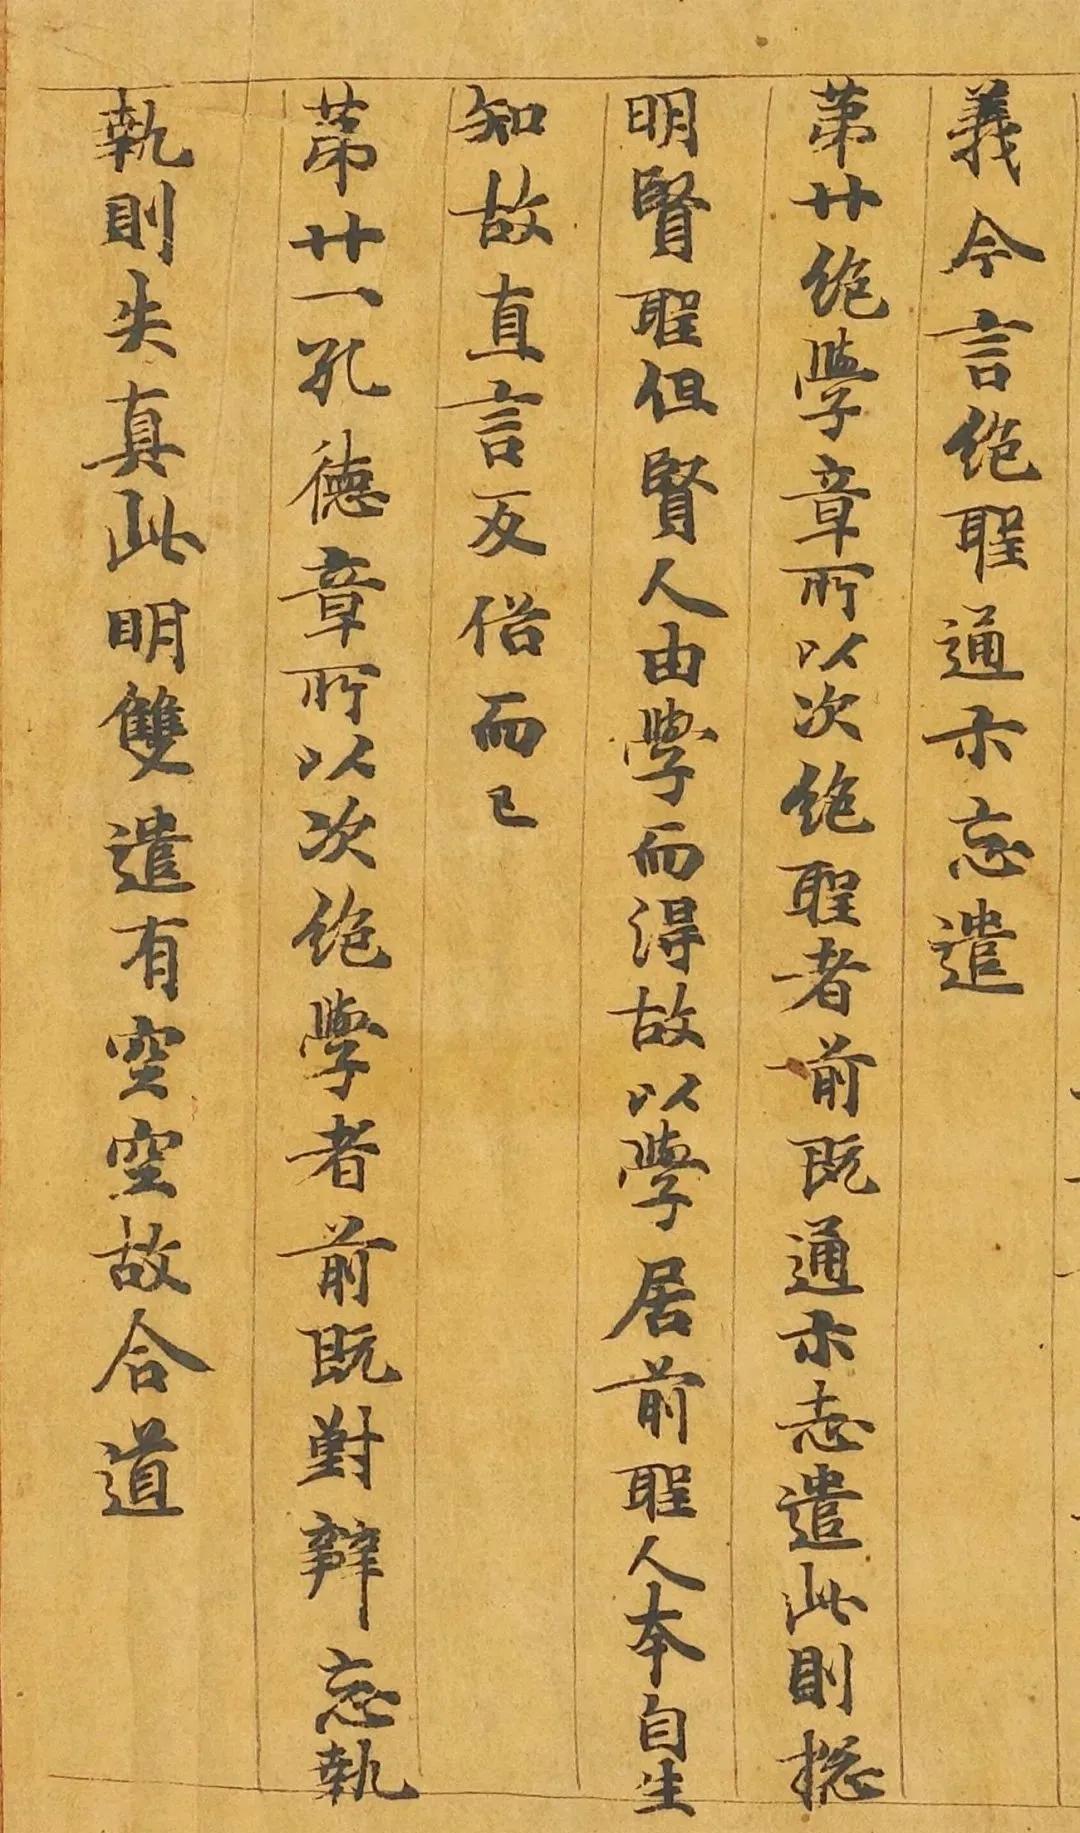 義今言絶聖通示忘遣
第廿絶學章所以次絶聖者前既通示志遣此則揔
明賢聖但賢人由學而得故以學居前聖人本自生
知故直言反俗而已
第廿一孔德章所以次絶學者前既對辯忘執
執則失真此明雙遣有空空故合道